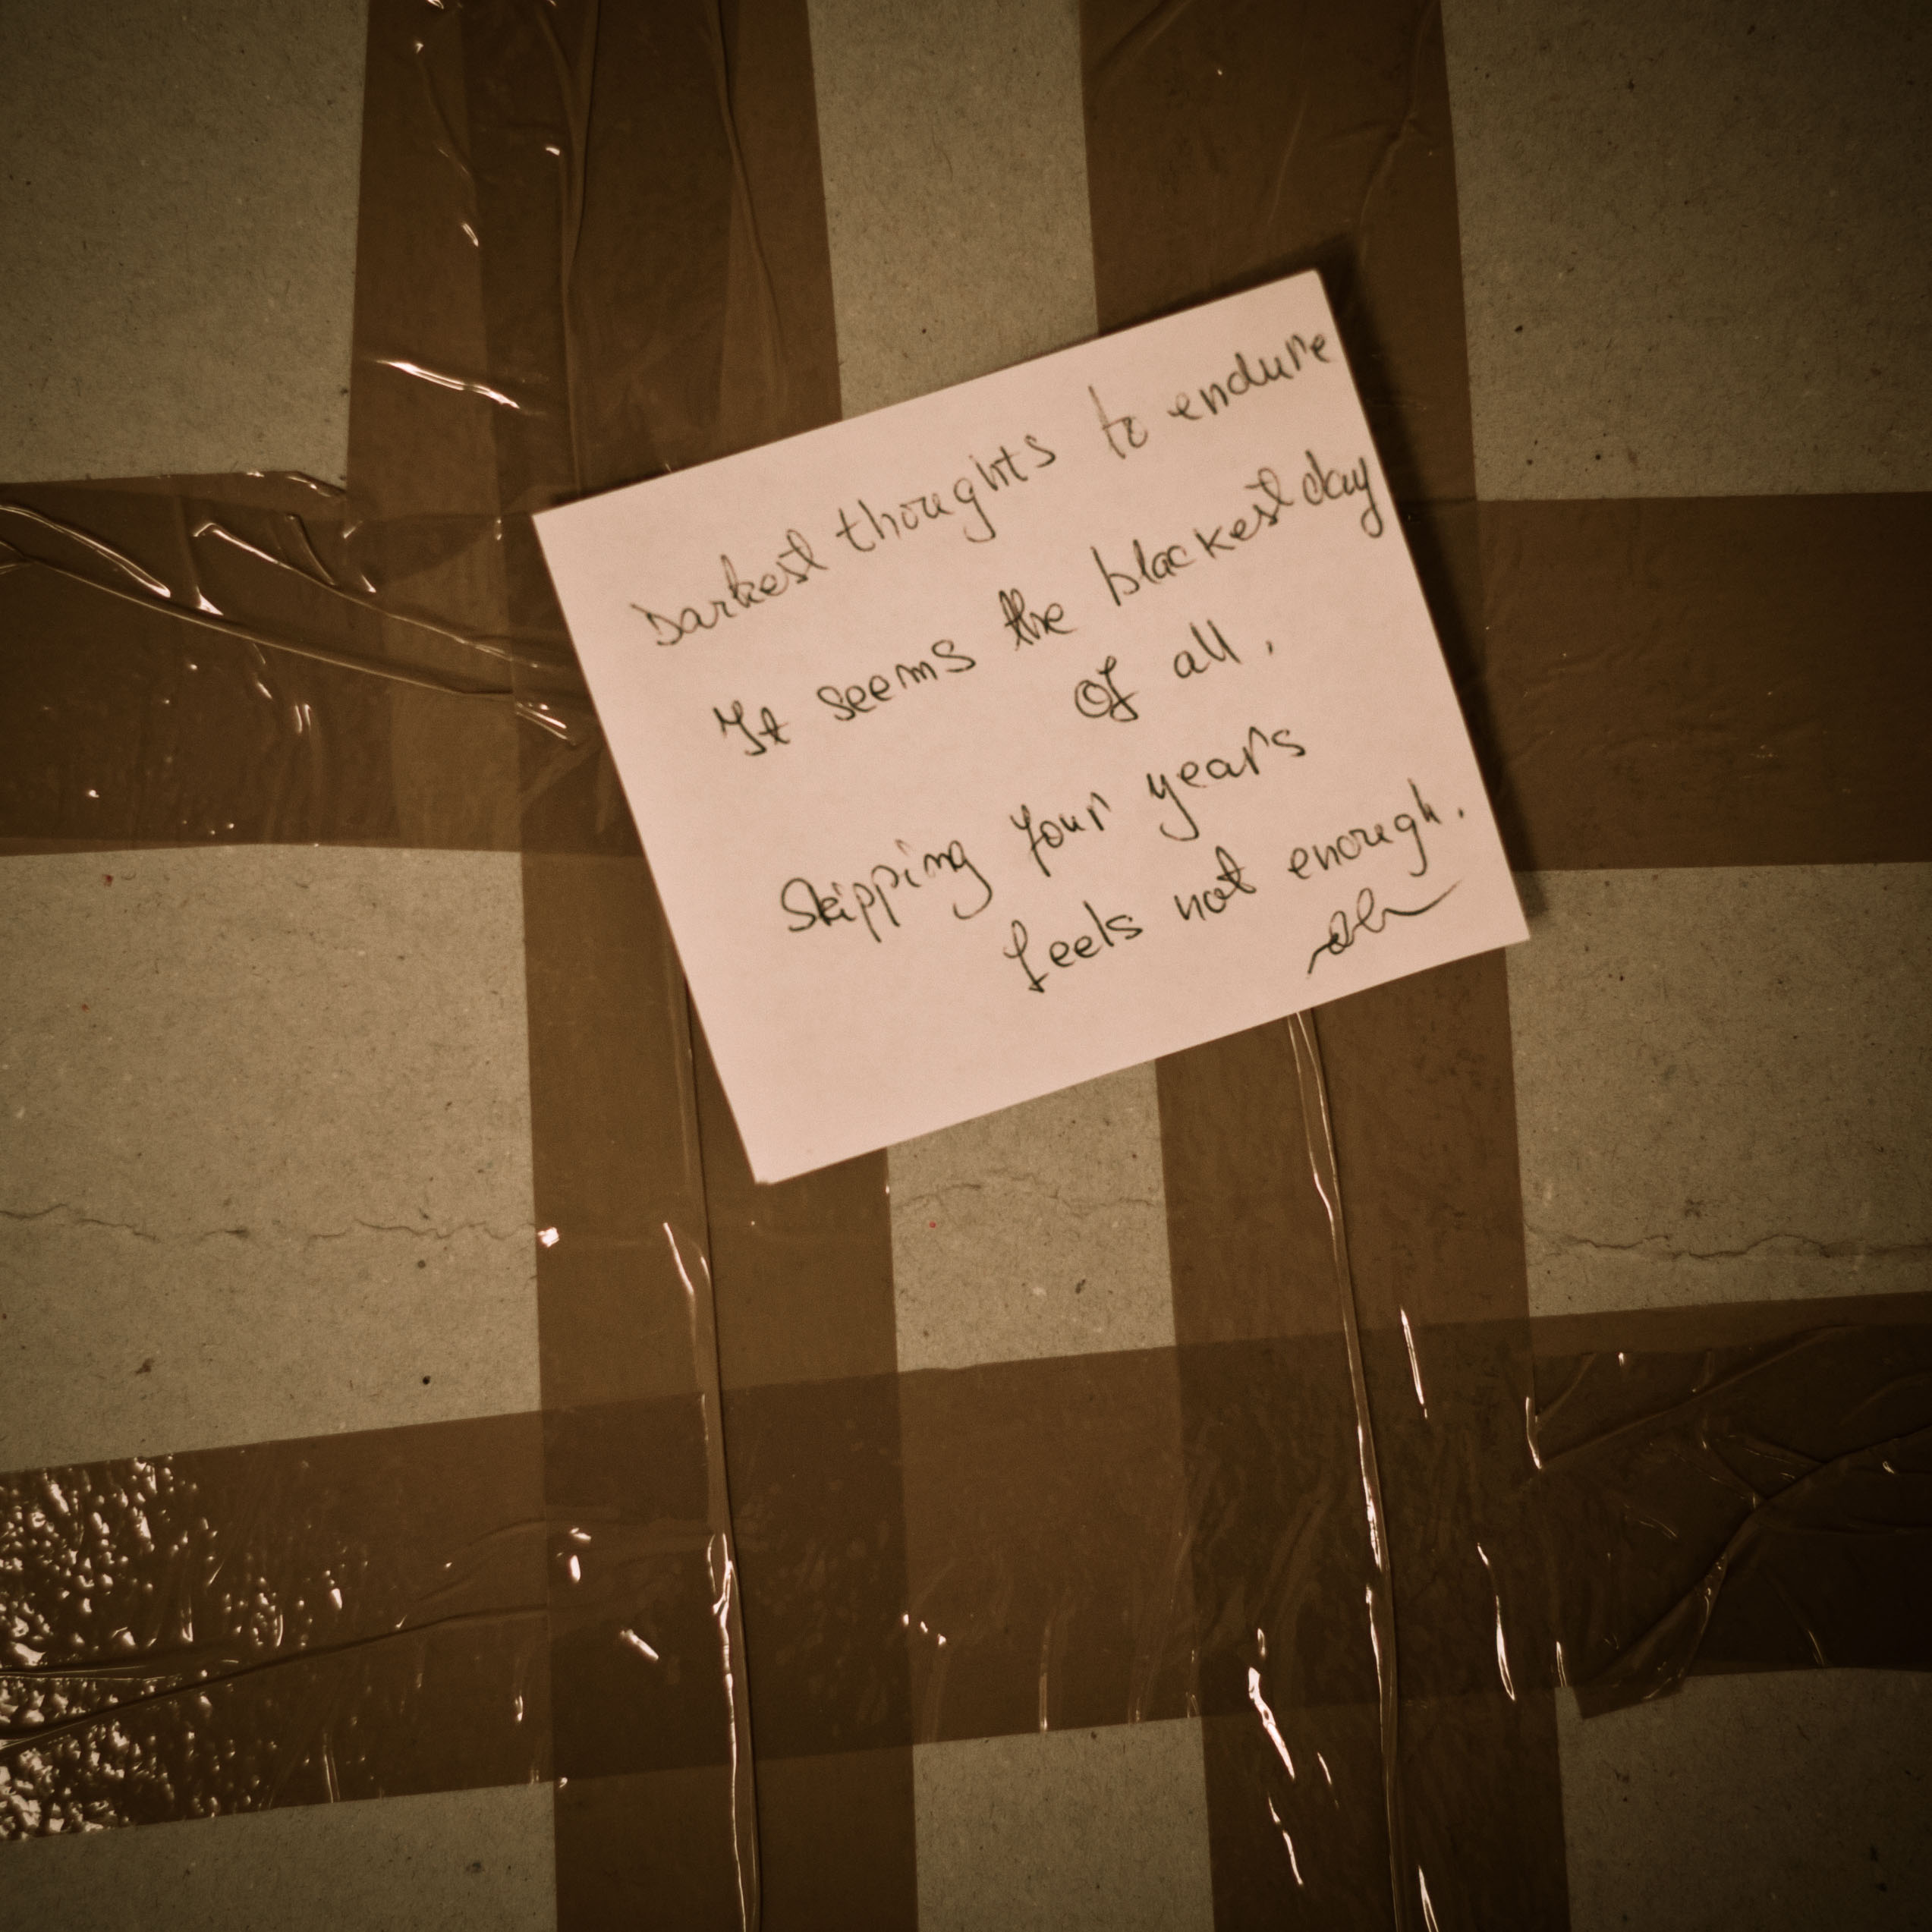 Darkest thoughts to endure
It seems the blackest day
Of all.
Skipping four years
feels not enough.